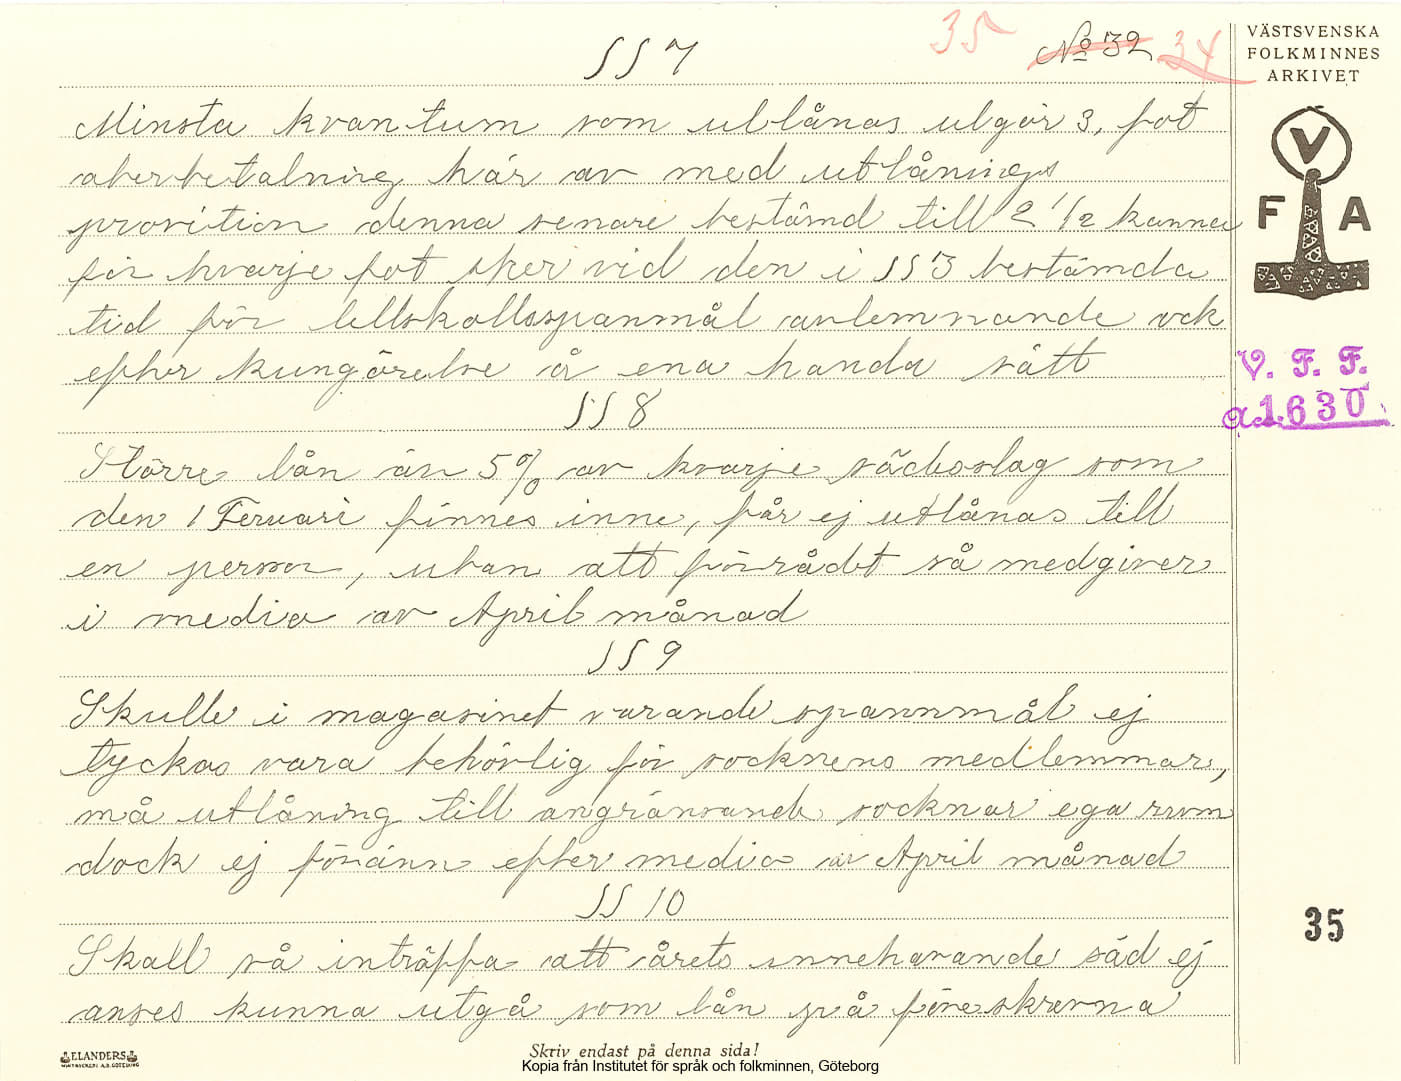 35 No 32 34
SS 7
Minsta kvantum som utlånas utgör 3, fot
återbetalning här av med utlånings
provition denna senare bestämd till 2 1/2 kanna
för hvarje fot sker vid den i SS 3 bestämda
tid för spanmål avlemnande ock
efter kungörelse å ena handa sätt
SS 8
Större lån än 5% av kvarje sädesslag som
den 1 Feruari finnes inne, får ej utlånas till
en person, utan att förrådet så medgiver
i medio av April månad
SS 9
Skulle i magasinet varande spannmål ej
tyckas vara behövlig för socknens medlemmar,
må utlåning till angränsande socknar ega rum
dock ej förränn efter medio av April månad
SS 10
Skall så inträffa att årets innehavande säd ej
anses kunna utgå som lån på föreskrevna
VÄSTSVENSKA
FOLKMINNES
ARKIVET
V
F A
V. F. F.
a.1630
35
ELANDERS
Skriv endast på denna sida!
Kopia från Institutet för språk och folkminnen, Göteborg